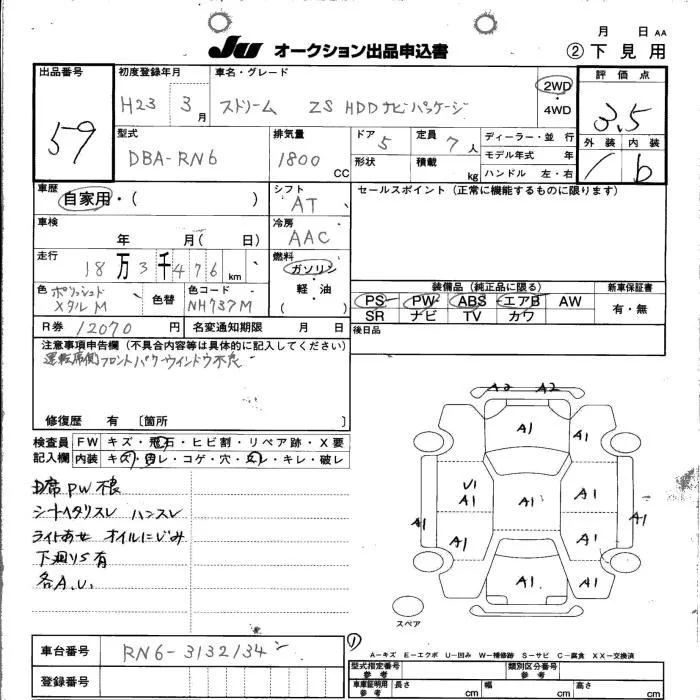 月 日 AA
JU オークション出品申込書 ②下見用
出品番号 初度登録年月 車名・グレード 2WD・4WD 評価点
59 H23 3月 ストリーム ZS HDDナビパッケージ 3.5
型式 排気量 ドア 定員 ディーラー・並行 外装 内装
DBA-RN6 1800 CC 5 7人 モデル年式 年 b
形状 積載 kg ハンドル 左・右
車歴 自家用・( ) シフト AT セールスポイント(正常に機能するものに限ります)
車検 年 月( 日) 冷房 AAC
走行 18万3千476km 燃料 ガソリン・軽油 ( )
色 ポリッシュドメタルM 色替 色コード NH737M
装備品(純正品に限る) 新車保証書
PS PW ABS エアB AW 有・無
SR ナビ TV カワ
R券 12070円 名変通知期限 月 日 後日品
注意事項申告欄(不具合内容等は具体的に記入してください)
運転席側フロントパワーウインドウ不良
修復歴 有 〔箇所 〕
検査員記入欄 FW キズ・飛石・ヒビ割・リペア跡・X要
内装 キズ・汚レ・コゲ・穴・スレ・キレ・破レ
席PW不良
シートヘタリスレ ハンスレ
ライトあせ オイルにじみ
下廻りS有
各A.U.
A2 A2
A1 A1
U1
A1 A1 A1
A1 A1 A1 A1
A1 A1
スペア
車台番号 RN6-3132134
①
A-キズ E-エクボ U-凹み W-補修跡 S-サビ C-腐食 XX-交換済
登録番号
型式指定番号 参考 類別区分番号 参考
車庫証明用 参考 長さ cm 幅 cm 高さ cm